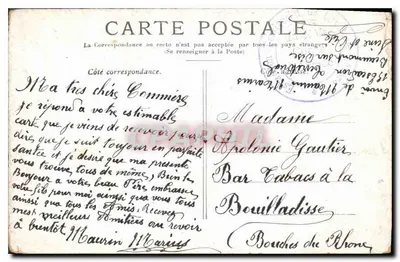 CARTE POSTALE
La Correspondance au recto n'est pas acceptée par tous les pays étrangers
(Se renseigner à la Poste)
Côté correspondance.
Ma très chère Commère
je répond a votre estimable
carte que je viens de recevoir pour
dire que je suit toujour en parfaite
santée et je desire que ma presente
vous trouve, tous de même, Bien le
Bonjour a votre beau Père embrasse
votre fils pour moi ainsi que vous tous
ainsi que tous les Amis. Recevez
mest meilleur Amitiées au revoir
a bientôt Maurin Marius
Envoi de Maurin Marius
Beaumont sur Oise
Seine et Oise
Madame
Apolonie Gautier
Bar Tabacs à la
Bouilladisse
(Bouches du Rhone